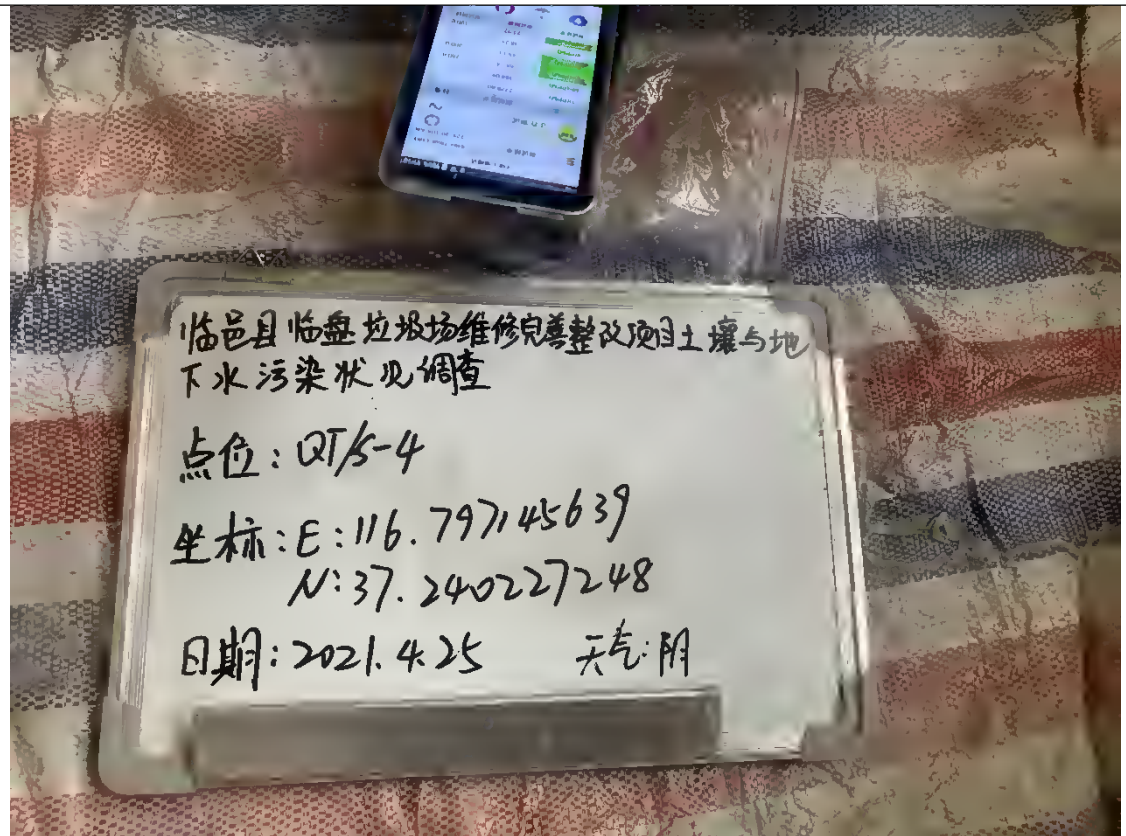 临邑县临盘垃圾场维修完善整改项目土壤与地
下水污染状况调查
点位：QT/S-4
坐标：E：116.797145639
N：37.240227248
日期：2021.4.25 天气：阴